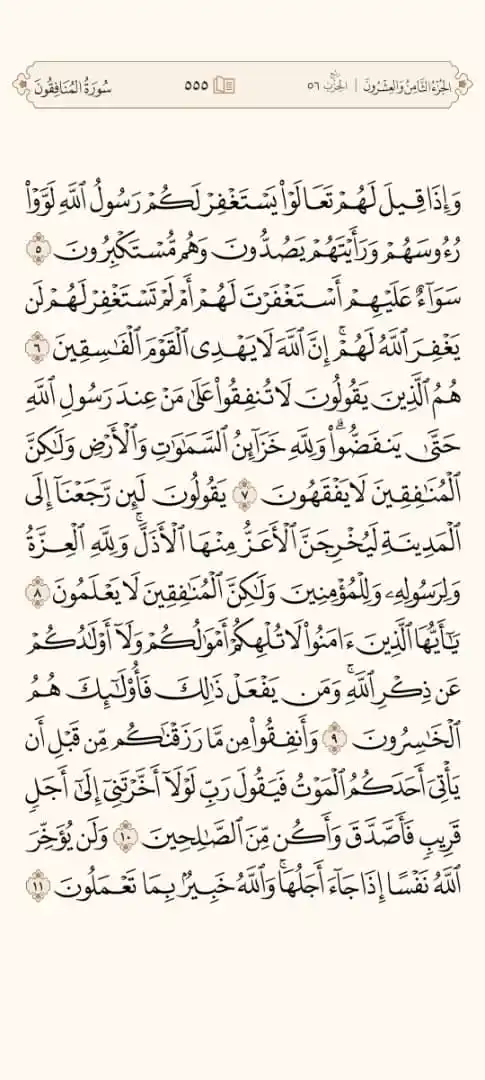 الجزء الثامن والعشرون | ربع الحزب ٥٦
٥٥٥
سورة المنافقون
وَإِذَا قِيلَ لَهُمْ تَعَالَوْاْ يَسْتَغْفِرْ لَكُمْ رَسُولُ ٱللَّهِ لَوَّوْاْ
رُءُوسَهُمْ وَرَأَيْتَهُمْ يَصُدُّونَ وَهُم مُّسْتَكْبِرُونَ ٥
سَوَآءٌ عَلَيْهِمْ أَسْتَغْفَرْتَ لَهُمْ أَمْ لَمْ تَسْتَغْفِرْ لَهُمْ لَن
يَغْفِرَ ٱللَّهُ لَهُمْۚ إِنَّ ٱللَّهَ لَا يَهْدِى ٱلْقَوْمَ ٱلْفَٰسِقِينَ ٦
هُمُ ٱلَّذِينَ يَقُولُونَ لَا تُنفِقُواْ عَلَىٰ مَنْ عِندَ رَسُولِ ٱللَّهِ
حَتَّىٰ يَنفَضُّواْۗ وَلِلَّهِ خَزَآئِنُ ٱلسَّمَٰوَٰتِ وَٱلْأَرْضِ وَلَٰكِنَّ
ٱلْمُنَٰفِقِينَ لَا يَفْقَهُونَ ٧ يَقُولُونَ لَئِن رَّجَعْنَآ إِلَى
ٱلْمَدِينَةِ لَيُخْرِجَنَّ ٱلْأَعَزُّ مِنْهَا ٱلْأَذَلَّۚ وَلِلَّهِ ٱلْعِزَّةُ
وَلِرَسُولِهِۦ وَلِلْمُؤْمِنِينَ وَلَٰكِنَّ ٱلْمُنَٰفِقِينَ لَا يَعْلَمُونَ ٨
يَٰٓأَيُّهَا ٱلَّذِينَ ءَامَنُواْ لَا تُلْهِكُمْ أَمْوَٰلُكُمْ وَلَآ أَوْلَٰدُكُمْ
عَن ذِكْرِ ٱللَّهِۚ وَمَن يَفْعَلْ ذَٰلِكَ فَأُوْلَٰٓئِكَ هُمُ
ٱلْخَٰسِرُونَ ٩ وَأَنفِقُواْ مِن مَّا رَزَقْنَٰكُم مِّن قَبْلِ أَن
يَأْتِىَ أَحَدَكُمُ ٱلْمَوْتُ فَيَقُولَ رَبِّ لَوْلَآ أَخَّرْتَنِىٓ إِلَىٰٓ أَجَلٍ
قَرِيبٍ فَأَصَّدَّقَ وَأَكُن مِّنَ ٱلصَّٰلِحِينَ ١٠ وَلَن يُؤَخِّرَ
ٱللَّهُ نَفْسًا إِذَا جَآءَ أَجَلُهَاۚ وَٱللَّهُ خَبِيرٌۢ بِمَا تَعْمَلُونَ ١١